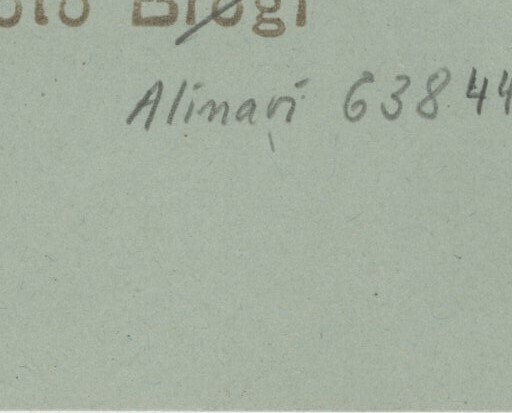 Brogi
Alinari 63844